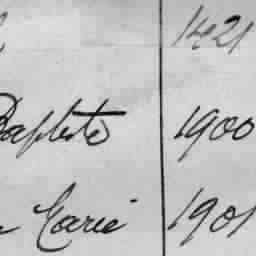 1421
Baptiste 1900
Marie 1901